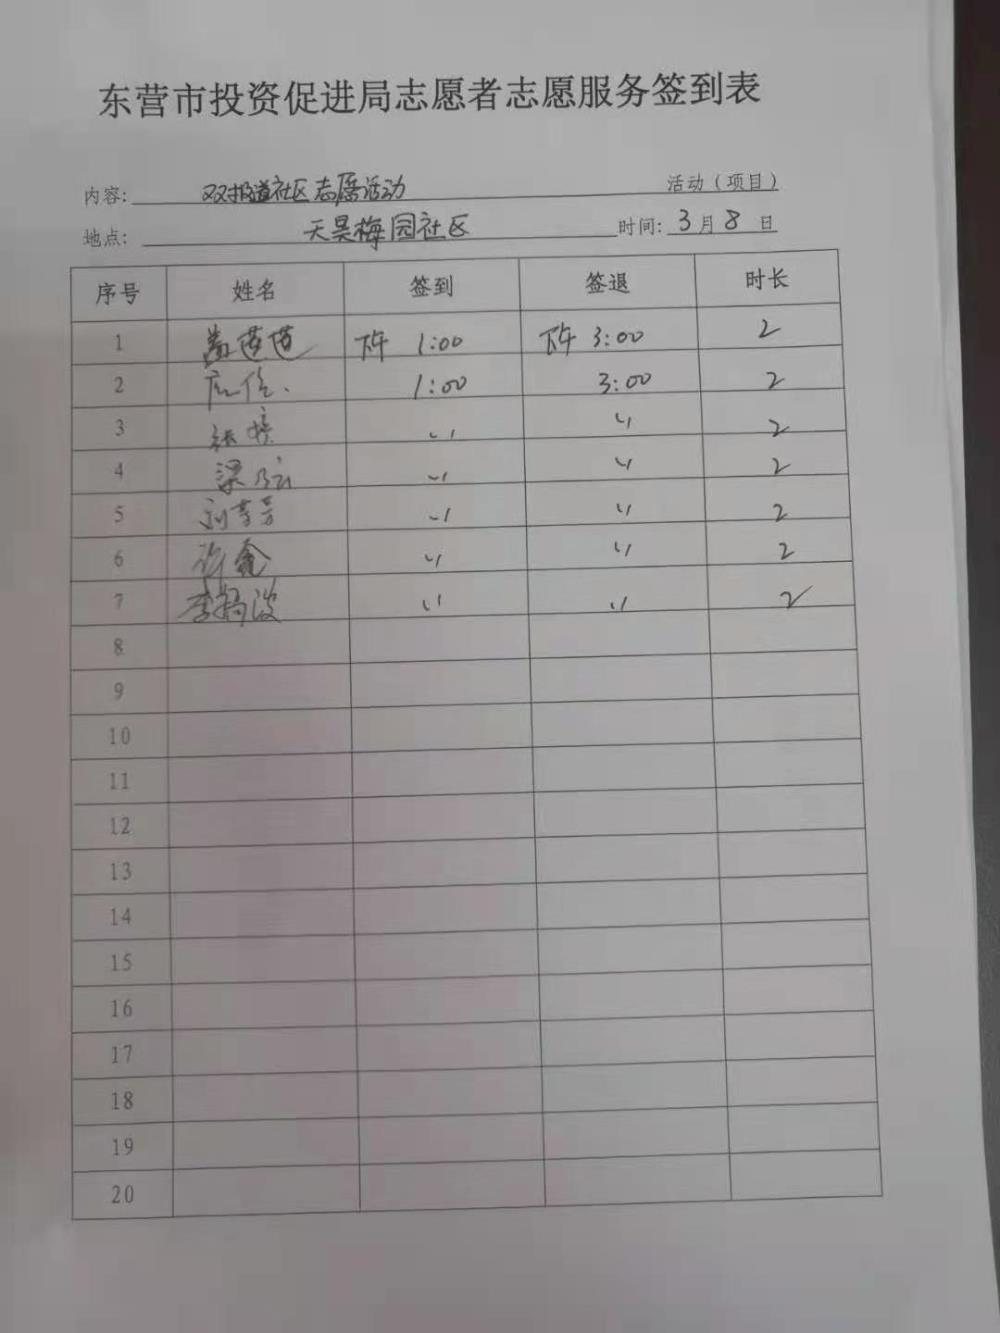 东营市投资促进局志愿者志愿服务签到表
内容: 双报道社区志愿活动 活动（项目）
地点: 天昊梅园社区 时间: 3月8日
序号 姓名 签到 签退 时长
1 下午 1:00 下午 3:00 2
2 1:00 3:00 2
3 〃 〃 2
4 〃 〃 2
5 〃 〃 2
6 许鑫 〃 〃 2
7 〃 〃 2
8
9
10
11
12
13
14
15
16
17
18
19
20